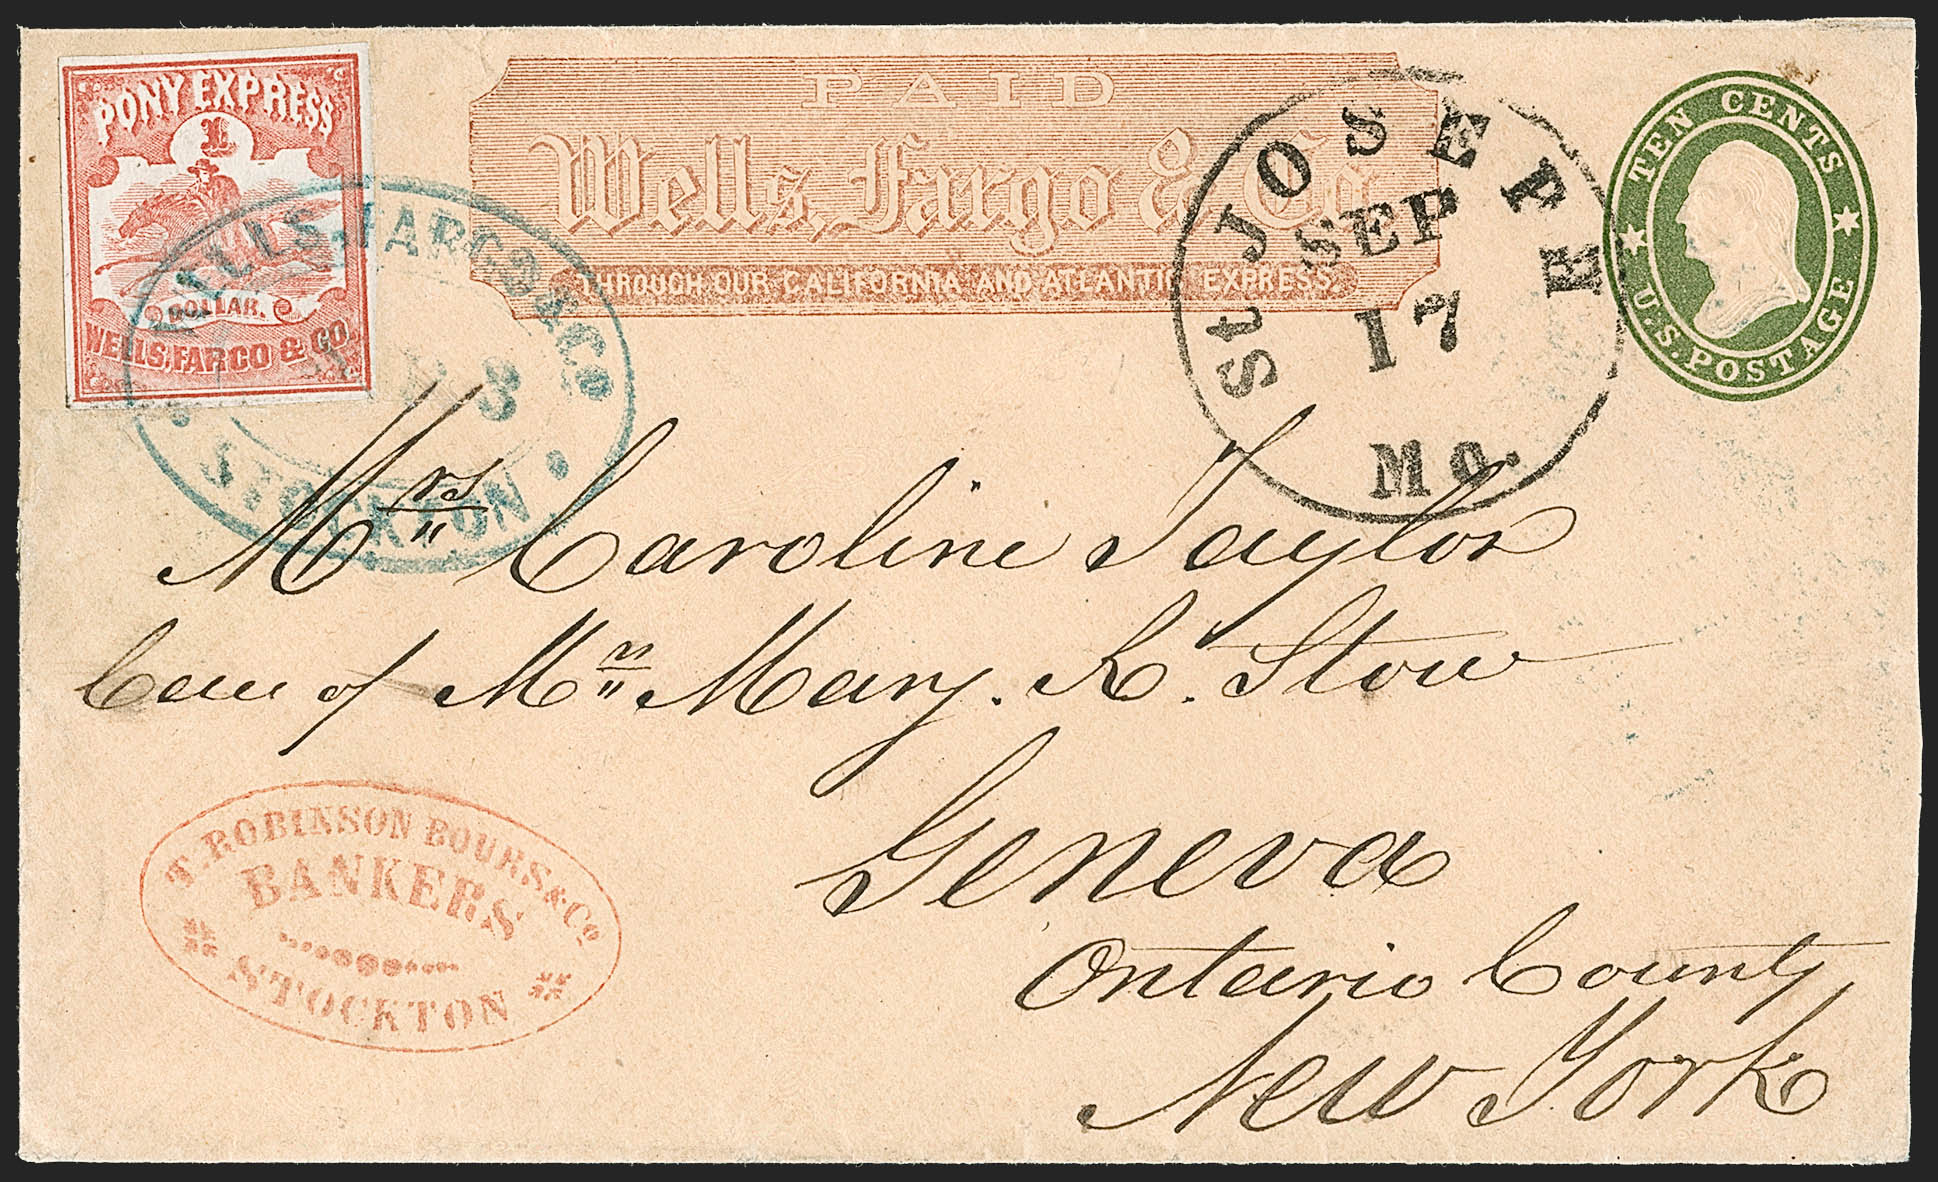 PONY EXPRESS
1
DOLLAR.
WELLS, FARGO & CO.
PAID
Wells, Fargo & Co.
THROUGH OUR CALIFORNIA AND ATLANTIC EXPRESS.
St JOSEPH
SEP
17
Mo.
TEN CENTS
U.S. POSTAGE
WELLS, FARGO & CO
3
STOCKTON
Mrs Caroline Taylor
Care of Mrs Mary. R. Stow
Geneva
Ontario County
New York
T. ROBINSON BOURS & Co
BANKERS
STOCKTON